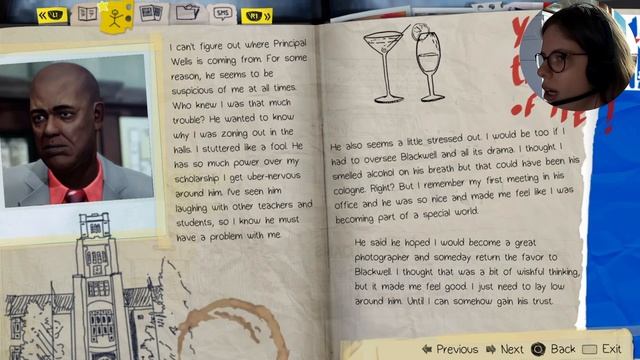 L1
SMS
R1
I can't figure out where Principal
Wells is coming from. For some
reason, he seems to be
suspicious of me at all times.
Who knew I was that much
trouble? He wanted to know
why I was zoning out in the
halls. I stuttered like a fool. He
has so much power over my
scholarship I get uber-nervous
around him. I've seen him
laughing with other teachers and
students, so I know he must
have a problem with me.
He also seems a little stressed out. I would be too if I
had to oversee Blackwell and all its drama. I thought I
smelled alcohol on his breath but that could have been his
cologne. Right? But I remember my first meeting in his
office and he was so nice and made me feel like I was
becoming part of a special world.
He said he hoped I would become a great
photographer and someday return the favor to
Blackwell. I thought that was a bit of wishful thinking,
but it made me feel good. I just need to lay low
around him. Until I can somehow gain his trust.
Previous Next Back Exit